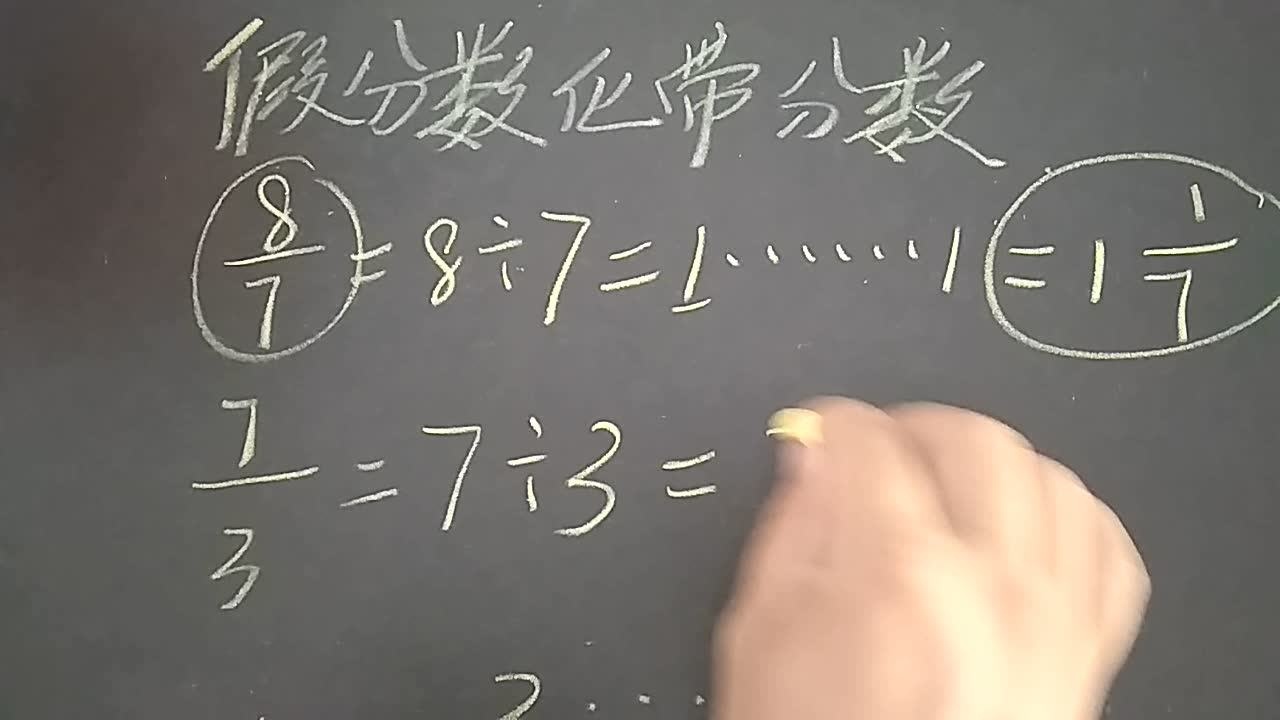 假分数化带分数
8/7 = 8÷7 = 1……1 = 1 1/7
7/3 = 7÷3 =